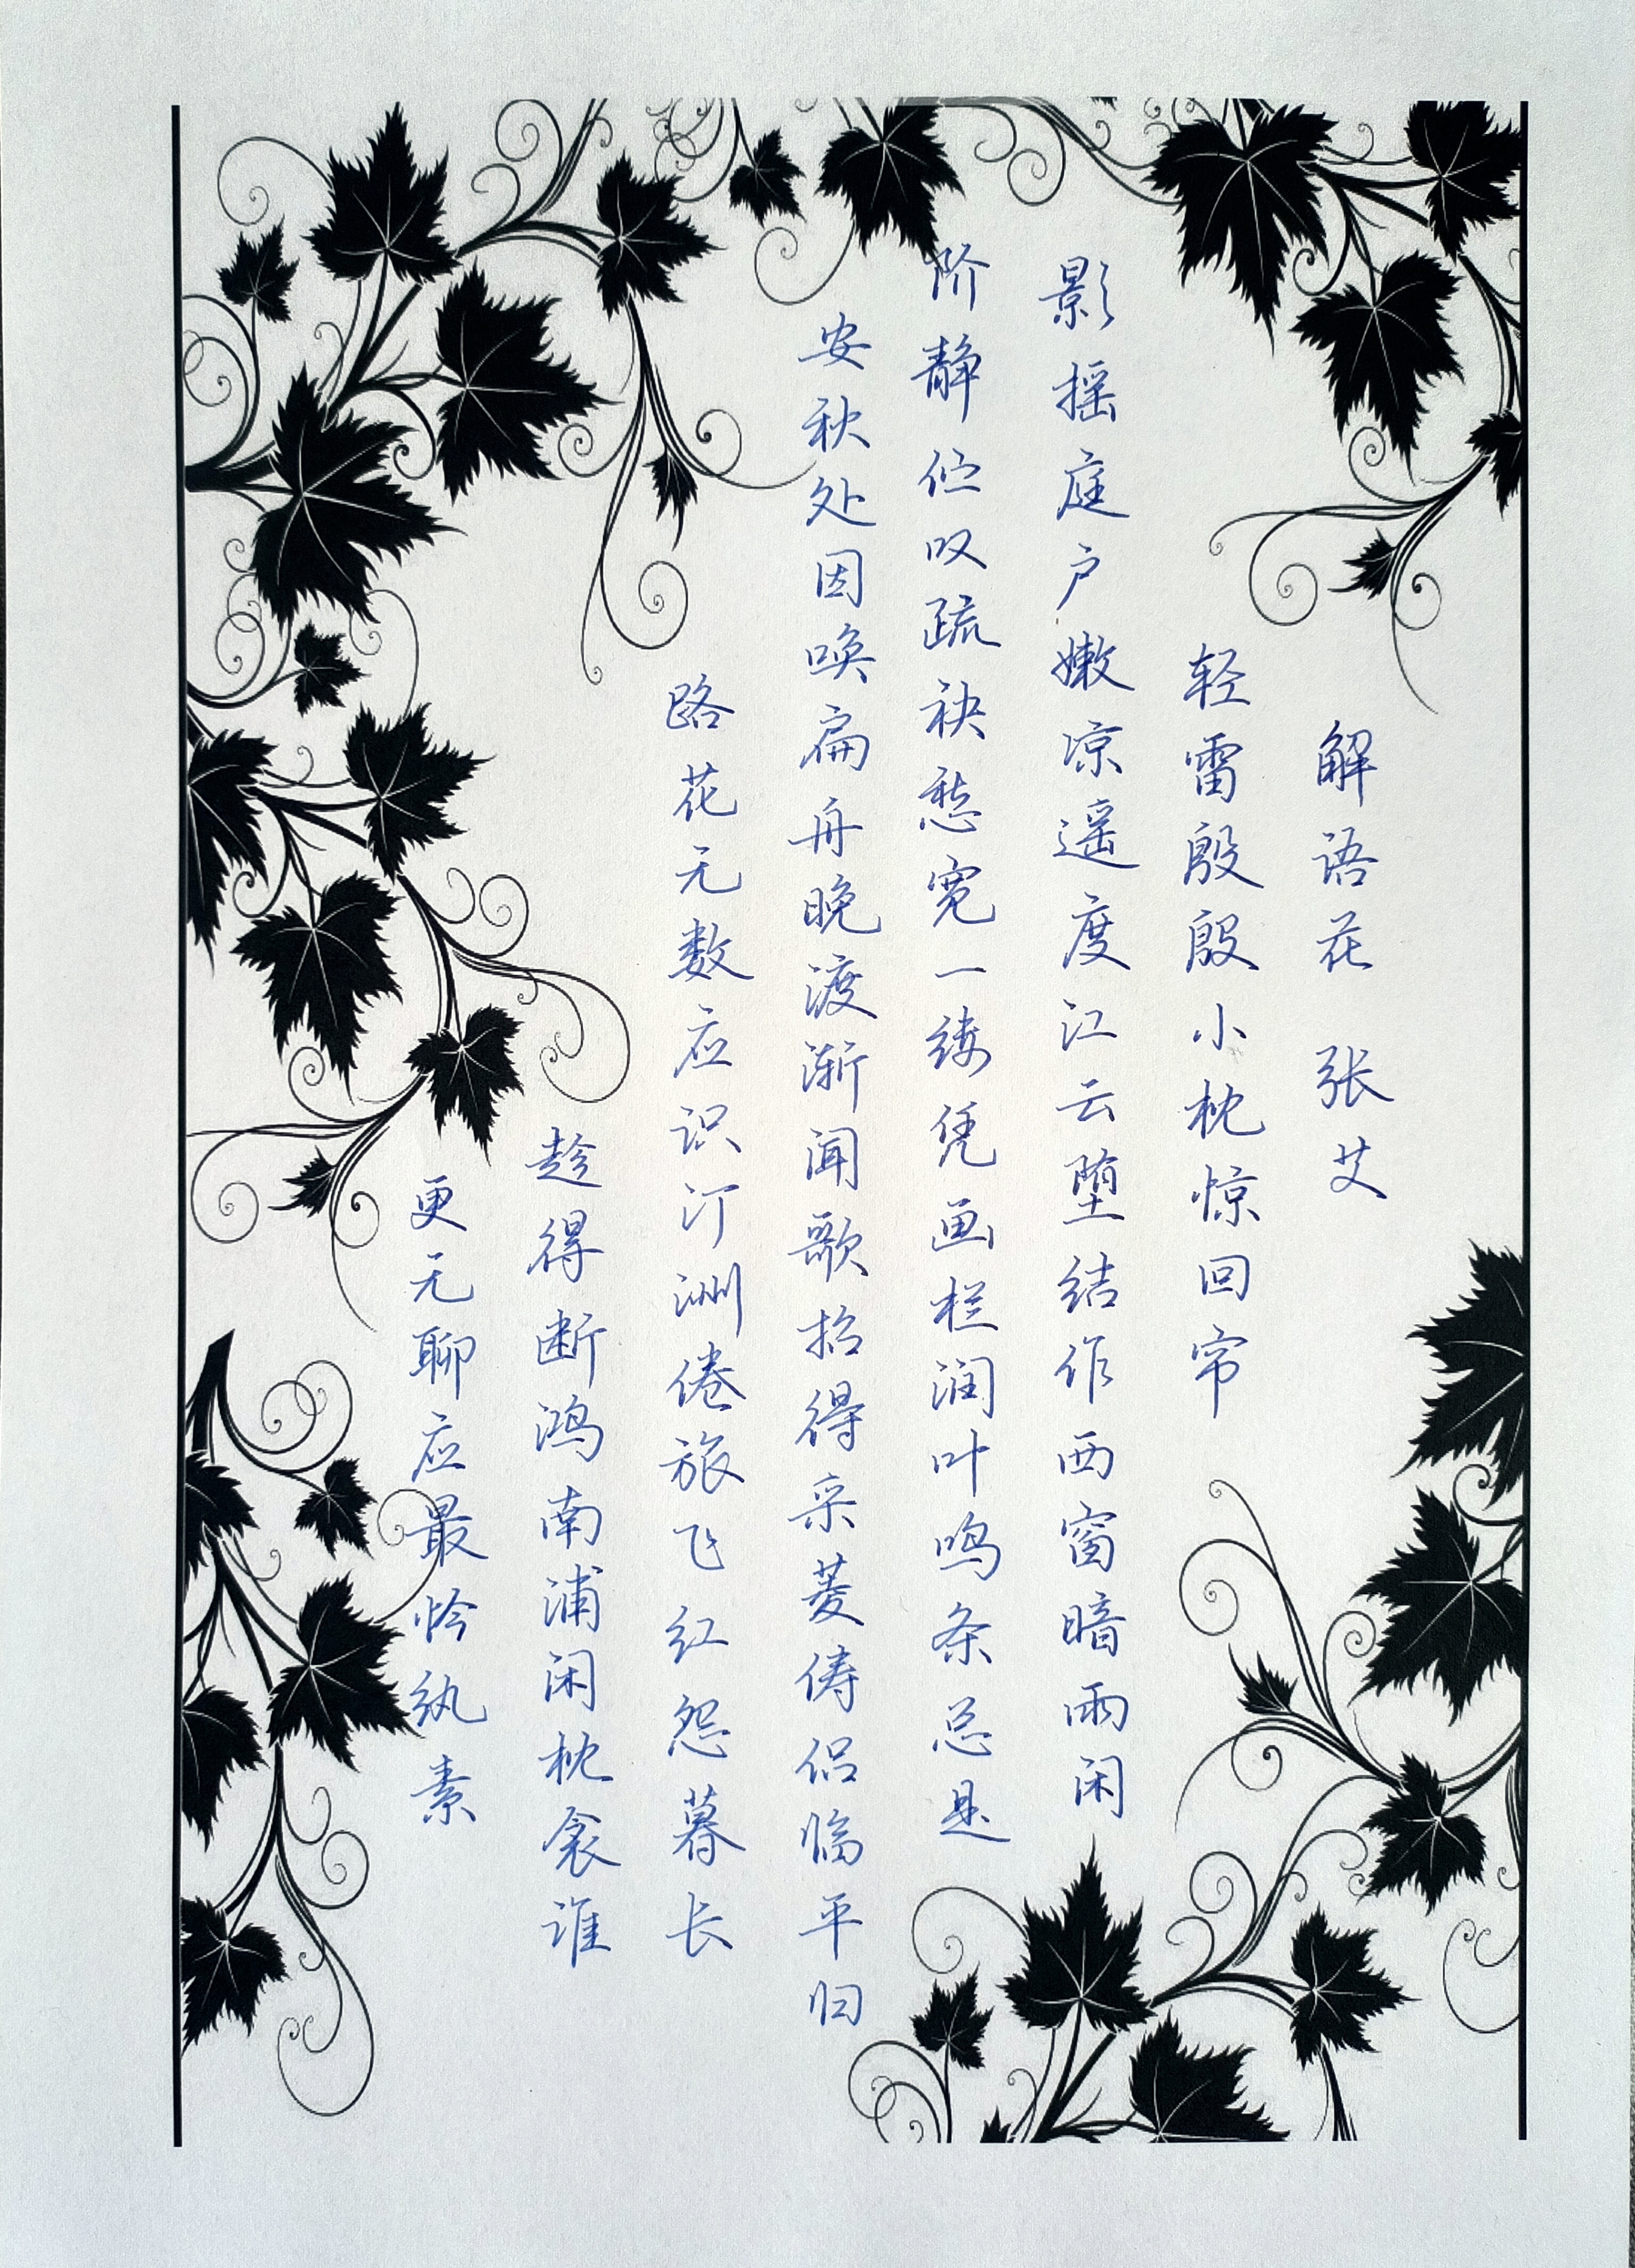 解语花 张艾
轻雷殷殷小枕惊回帘
影摇庭户嫩凉遥度江云堕结作西窗暗雨闲
阶静伫叹疏袂愁宽一缕凭画栏润叶鸣条总是
安秋处因唤扁舟晚渡渐闻歌招得采菱俦侣临平归
路花无数应识汀洲倦旅飞红怨暮长
趁得断鸿南浦闲枕衾谁
更无聊应最怜纨素